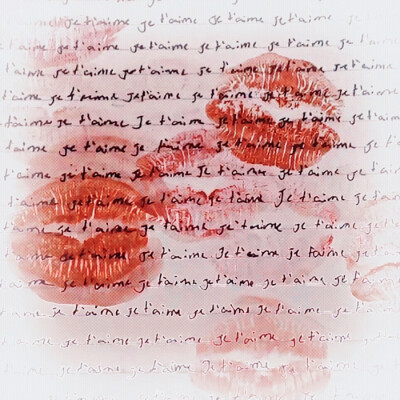 je t'aime je t'aime je t'aime je t'aime je
t'aime je t'aime je t'aime je t'aime je t'aime je t'
t'aime je t'aime je t'aime je t'aime je t'aime je t'aime
t'aime je t'aime je t'aime je t'aime je t'aime je t'aime
t'aime je t'aime Je t'aime je t'aime je t'aime je t'aime
t'aime je t'aime je t'aime je t'aime je t'aime je t'
t'aime je t'aime je t'aime Je t'aime je t'aime je t'
t'aime je t'aime je t'aime je t'aime Je t'aime je t'aime
t'aime je t'aime je t'aime je t'aime je t'aime je t'aime
t'aime je t'aime je t'aime Je t'aime je t'aime je t'
t'aime je t'aime je t'aime je t'aime je t'aime je t'aime
t'aime je t'aime je t'aime je t'aime je t'aime
je t'aime je t'aime je t'aime je t'aime je t'aime
je t'aime je t'aime je t'aime je t'aime je t'aime